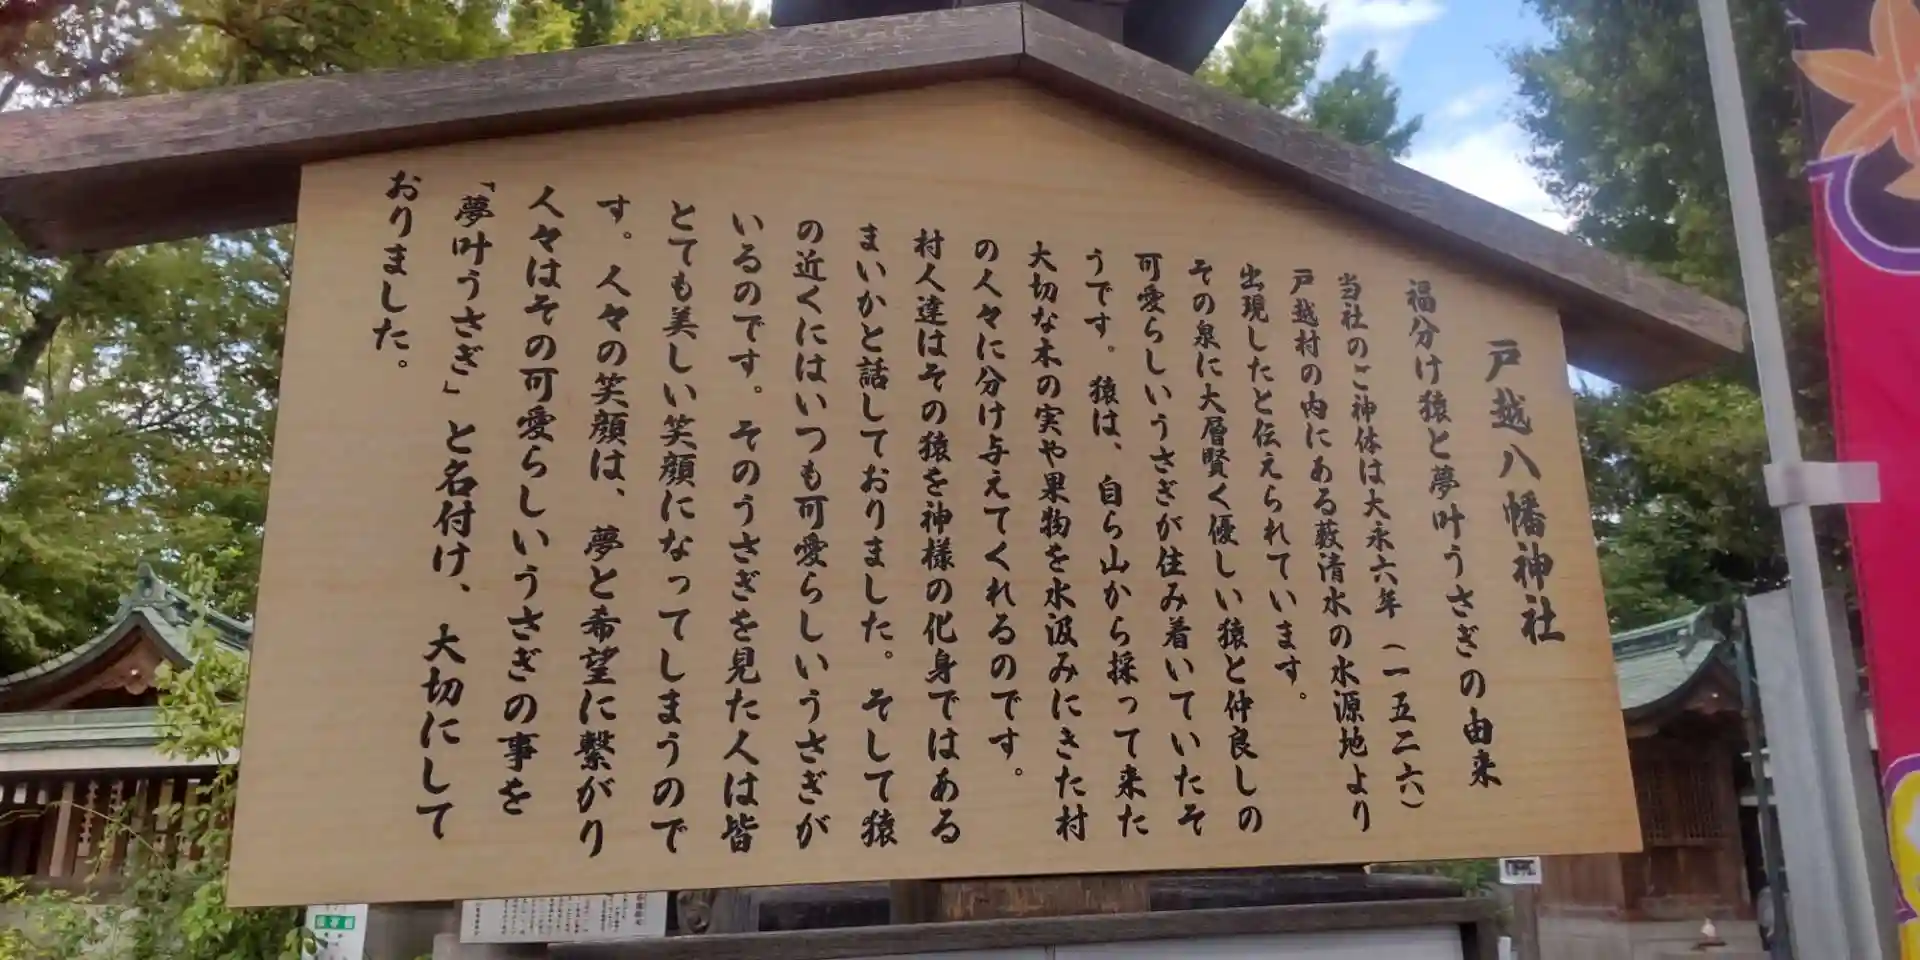 戸越八幡神社
福分け猿と夢叶うさぎの由来
当社のご神体は大永六年（一五二六）
戸越村の内にある藪清水の水源地より
出現したと伝えられています。
その泉に大層賢く優しい猿と仲良しの
可愛らしいうさぎが住み着いていたそ
うです。猿は、自ら山から採って来た
大切な木の実や果物を水汲みにきた村
の人々に分け与えてくれるのです。
村人達はその猿を神様の化身ではある
まいかと話しておりました。そして猿
の近くにはいつも可愛らしいうさぎが
いるのです。そのうさぎを見た人は皆
とても美しい笑顔になってしまうので
す。人々の笑顔は、夢と希望に繋がり
人々はその可愛らしいうさぎの事を
「夢叶うさぎ」と名付け、大切にして
おりました。